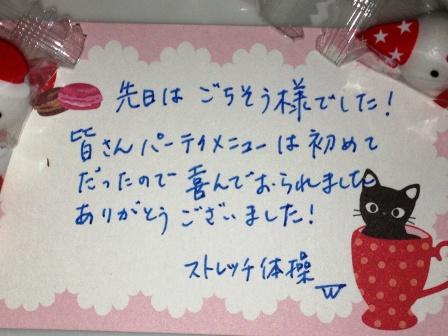 先日は ごちそう様でした!
皆さんパーティメニューは初めて
だったので喜んでおられました
ありがとうございました!
ストレッチ体操